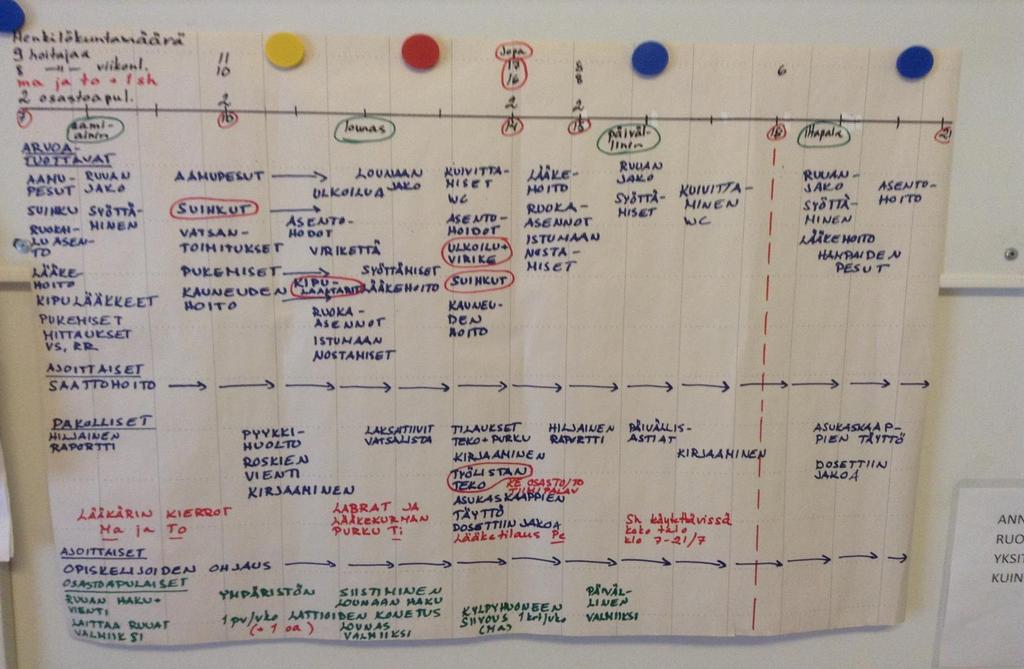 Henkilökuntamäärä
9 hoitajaa
8 —"— viikonl.
ma ja to + 1 sh
2 osastoapul.
11
10
2
Jopa
17
16
2
8
8
2
6
7
10
14
15
18
21
aami-
ainen
lounas
päiväl-
linen
iltapala
ARVOA-
TUOTTAVAT
AAMU-
PESUT
SUIHKU
RUOKAI-
LU ASEN-
TO
LÄÄKE-
HOITO
KIPULÄÄKKEET
PUKEMISET
MITTAUKSET
VS, RR
RUUAN
JAKO
SYÖTTÄ-
MINEN
AAMUPESUT
SUIHKUT
VATSAN-
TOIMITUKSET
PUKEMISET
KAUNEUDEN
HOITO
LOUNAAN
JAKO
ULKOILUA
ASENTO-
HODOT
VIRIKETTÄ
SYÖTTÄMISET
KIPU-
LÄÄKEHOITO
RUOKA-
ASENNOT
ISTUMAAN
NOSTAMISET
KUIVITTA-
MISET
WC
ASENTO-
HOIDOT
ULKOILU+
VIRIKE
SUIHKUT
KAUNEU-
DEN
HOITO
LÄÄKE-
HOITO
RUOKA-
ASENNOT
ISTUMAAN
NOSTA-
MISET
RUUAN
JAKO
SYÖTTÄ-
MISET
KUIVITTA-
MINEN
WC
RUUAN-
JAKO
SYÖTTÄ-
MINEN
LÄÄKEHOITO
HAMPAIDEN
PESUT
ASENTO-
HOITO
AJOITTAISET
SAATTOHOITO
PAKOLLISET
HILJAINEN
RAPORTTI
PYYKKI-
HUOLTO
ROSKIEN
VIENTI
KIRJAAMINEN
LAKSATIIVIT
VATSALISTA
TILAUKSET
TEKO + PURKU
KIRJAAMINEN
TYÖLISTAN
TEKO
KE OSASTO/TO
TIIMIPALAV
ASUKASKAAPPIEN
TÄYTTÖ
DOSETTIIN JAKOA
Lääketilaus Pe
HILJAINEN
RAPORTTI
PÄIVÄLLIS-
ASTIAT
KIRJAAMINEN
ASUKASKAAP-
PIEN TÄYTTÖ
DOSETTIIN
JAKOA
LÄÄKÄRIN KIERROT
Ma ja To
LABRAT JA
LÄÄKEKUORMAN
PURKU Ti
Sh käytettävissä
koko talo
klo 7-21/7
AJOITTAISET
OPISKELIJOIDEN OHJAUS
OSASTOAPULAISET
RUUAN HAKU +
VIENTI
LAITTAA RUUAT
VALMIIKSI
YMPÄRISTÖN SIISTIMINEN
1 pv/vko LATTIOIDEN KONETUS
(+ 1 oa)
LOUNAAN HAKU
LOUNAS
VALMIIKSI
KYLPYHUONEEN
SIIVOUS 1 krt/vko
(MA)
PÄIVÄL-
LINEN
VALMIIKSI
ANN
RUO
YKSIT
KUIN